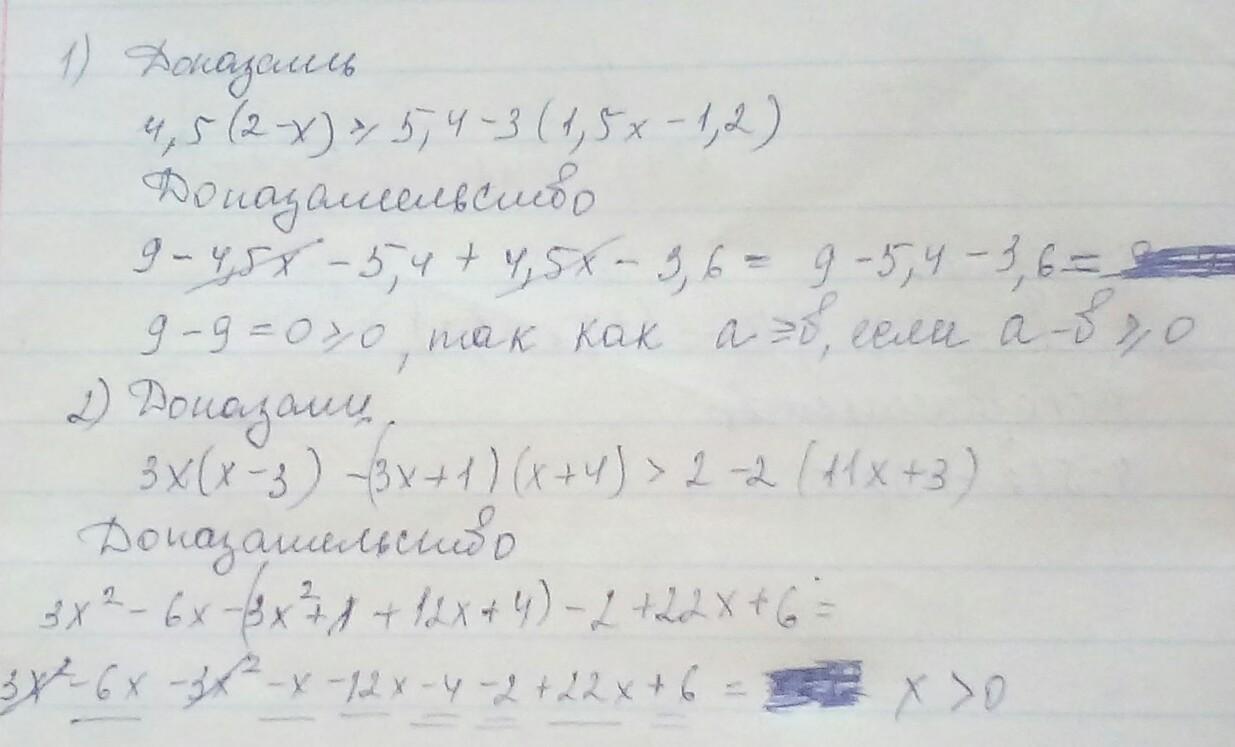 1) Доказать
4,5(2-x) ≥ 5,4-3(1,5x-1,2)
Доказательство
9-4,5x-5,4+4,5x-3,6 = 9-5,4-3,6 =
9-9=0≥0, так как a≥b, если a-b≥0
2) Доказать
3x(x-3)-(3x+1)(x+4)>2-2(11x+3)
Доказательство
3x²-6x-(3x²+1+12x+4)-2+22x+6=
3x²-6x-3x²-x-12x-4-2+22x+6= x>0